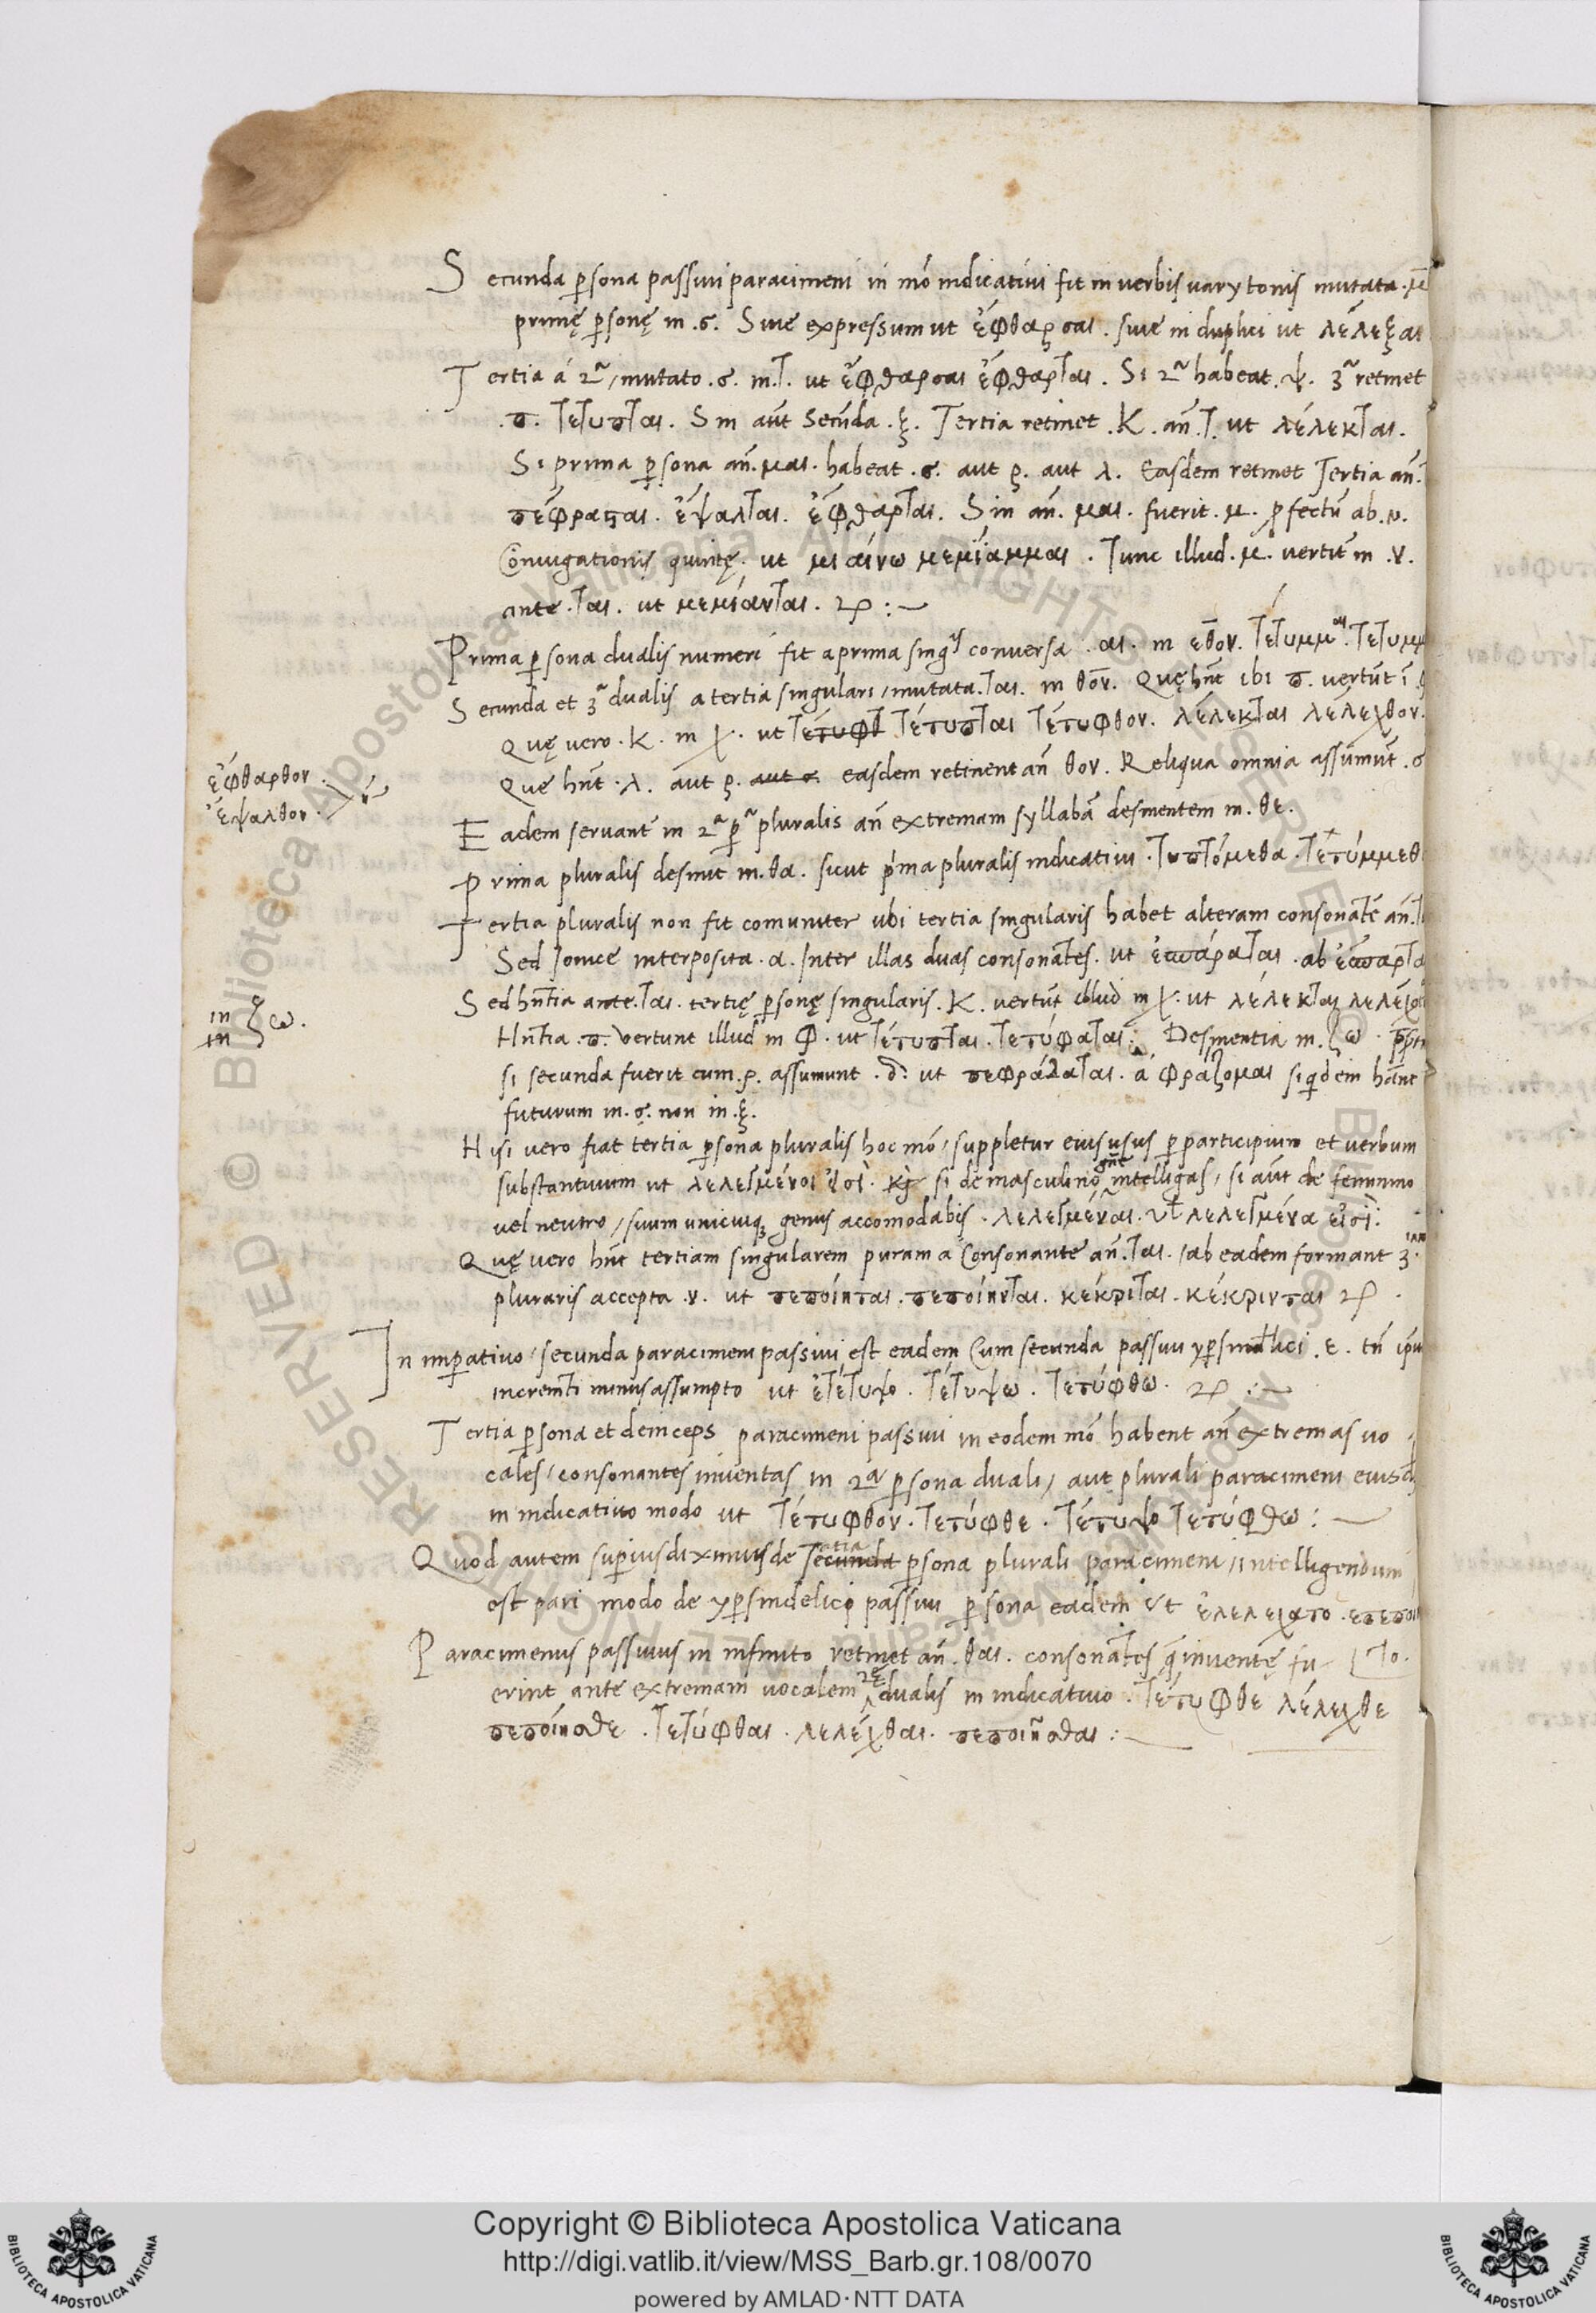 Secunda p̱sona passiui paracimeni in mō indicatiui fit in uerbis uarytonis mutata .μ
primę p̱sonę in .σ. Siue expressum ut ἔφθαρσαι . siue in duplici ut λέλεξαι
Tertia á 2ᵃ, mutato .σ. in .τ. ut ἔφθαρσαι ἔφθαρται . Si 2ᵃ habeat .ψ. 3ᵃ retinet
.π. τετυπται. Sin aūt Secūda .ξ. Tertia retinet .κ. añ .τ. ut λέλεκται.
Si prima p̱sona añ. μαι. habeat .σ. aut ρ. aut λ. Easdem retinet tertia añ.
πέφραϛαι. ἔψαλται. ἔφθαρται. Sin añ. μαι. fuerit .μ. ꝓfectū ab .ν.
Coniugationis quintę. ut μιαίνω μεμίαμμαι . tunc illud .μ. uertit̄ in .ν.
ante .ται. ut μεμίανται.
Prima p̱sona dualis numeri fit a prima sing conuersa .αι. in εθον. τέτυμμαι. τετυμμ
Secunda et 3ᵃ dualis a tertia singulari, mutata .ται. in θον. Quę hñt ibi π. uertūt ī
Quę uero .κ. in χ. ut τέτυφτ τέτυπται τέτυφθον. λέλεκται λέλεχθον.
Que hñt .λ. aut ρ. aut easdem retinent añ θον. Reliqua omnia assumūt .σ
ἔφθαρθον.
ἔψαλθον.
Eadem seruant̄ in 2ᵃ p̱ᵃ pluralis añ extremam syllabā desinentem in .θε.
Prima pluralis desinit in .θα. sicut ṕma pluralis indicatiui .τυπτόμεθα .τετύμμεθ
Tertia pluralis non fit comuniter ubi tertia singularis habet alteram consonātē añ.τ
Sed Ionice interposita .α. Inter illas duas consonātes. ut ἐσπάραται .ab ἔσπαρτα
Sed hñtia ante .ται. tertię p̱sonę singularis .κ. uertūt illud in χ. ut λέλεκται λελέχα
in
in ζω.
Hñtia .π. uertunt illud in φ. ut τέτυπται. τετύφαται. Desinentia in .ζω .
si secunda fuerit cum .ρ. assumunt .δ. ut πεφράδαται. à φράζομαι siqdem hāne
futurum in .σ. non in .ξ.
Nisi uero fiat tertia p̱sona pluralis hoc mō, suppletur eius usus p̱ participium et uerbum
substantiuum ut λελεγμένοι εἰσί. si de masculino gñe intelligas, si aūt de feminino
uel neutro, suum unicuiqꝫ genus accomodabis . λελεγμέναι. ut λελεγμένα εἰσί.
Quę uero hñt tertiam singularem puram a Consonante añ .ται. ,ab eadem formant 3.ᵃᵐ
pluraris accepta .ν. ut πεποίηται .πεποίηνται. κέκριται. κέκρινται
In imp̱atiuo, secunda paracimeni passiui est eadem Cum secunda passiui yp̱sindelici .ε. tñ
incremti minus assumpto ut ἐτέτυψο . τέτυψω . τετύφθω.
Tertia p̱sona et deinceps paracimeni passiui in eodem mō habent añ extremas uo
cales, consonantes inuentas in 2ᵃ p̱sona duali, aut plurali paracimeni eiusd
in indicatiuo modo ut τέτυφθον. τετύφθε . τέτυψο τετύφθω :
Quod autem sup̱ius diximus de Secunda tertia p̱sona plurali paracimeni, intelligendum
est pari modo de yp̱sindelico passiui p̱sona eadem ut ἐλελειχατο .επεποι
Paracimenus passiuus in infinito retinet añ .θαι. consonātes inuentę fu
το.
erint ante extremam uocalem 2ę dualis in indicatiuo . τέτυφθε λέλεχθε
πεποίησθε .τετύφθαι .λελέχθαι. πεποιῆσθαι :
Copyright © Biblioteca Apostolica Vaticana
http://digi.vatlib.it/view/MSS_Barb.gr.108/0070
powered by AMLAD·NTT DATA